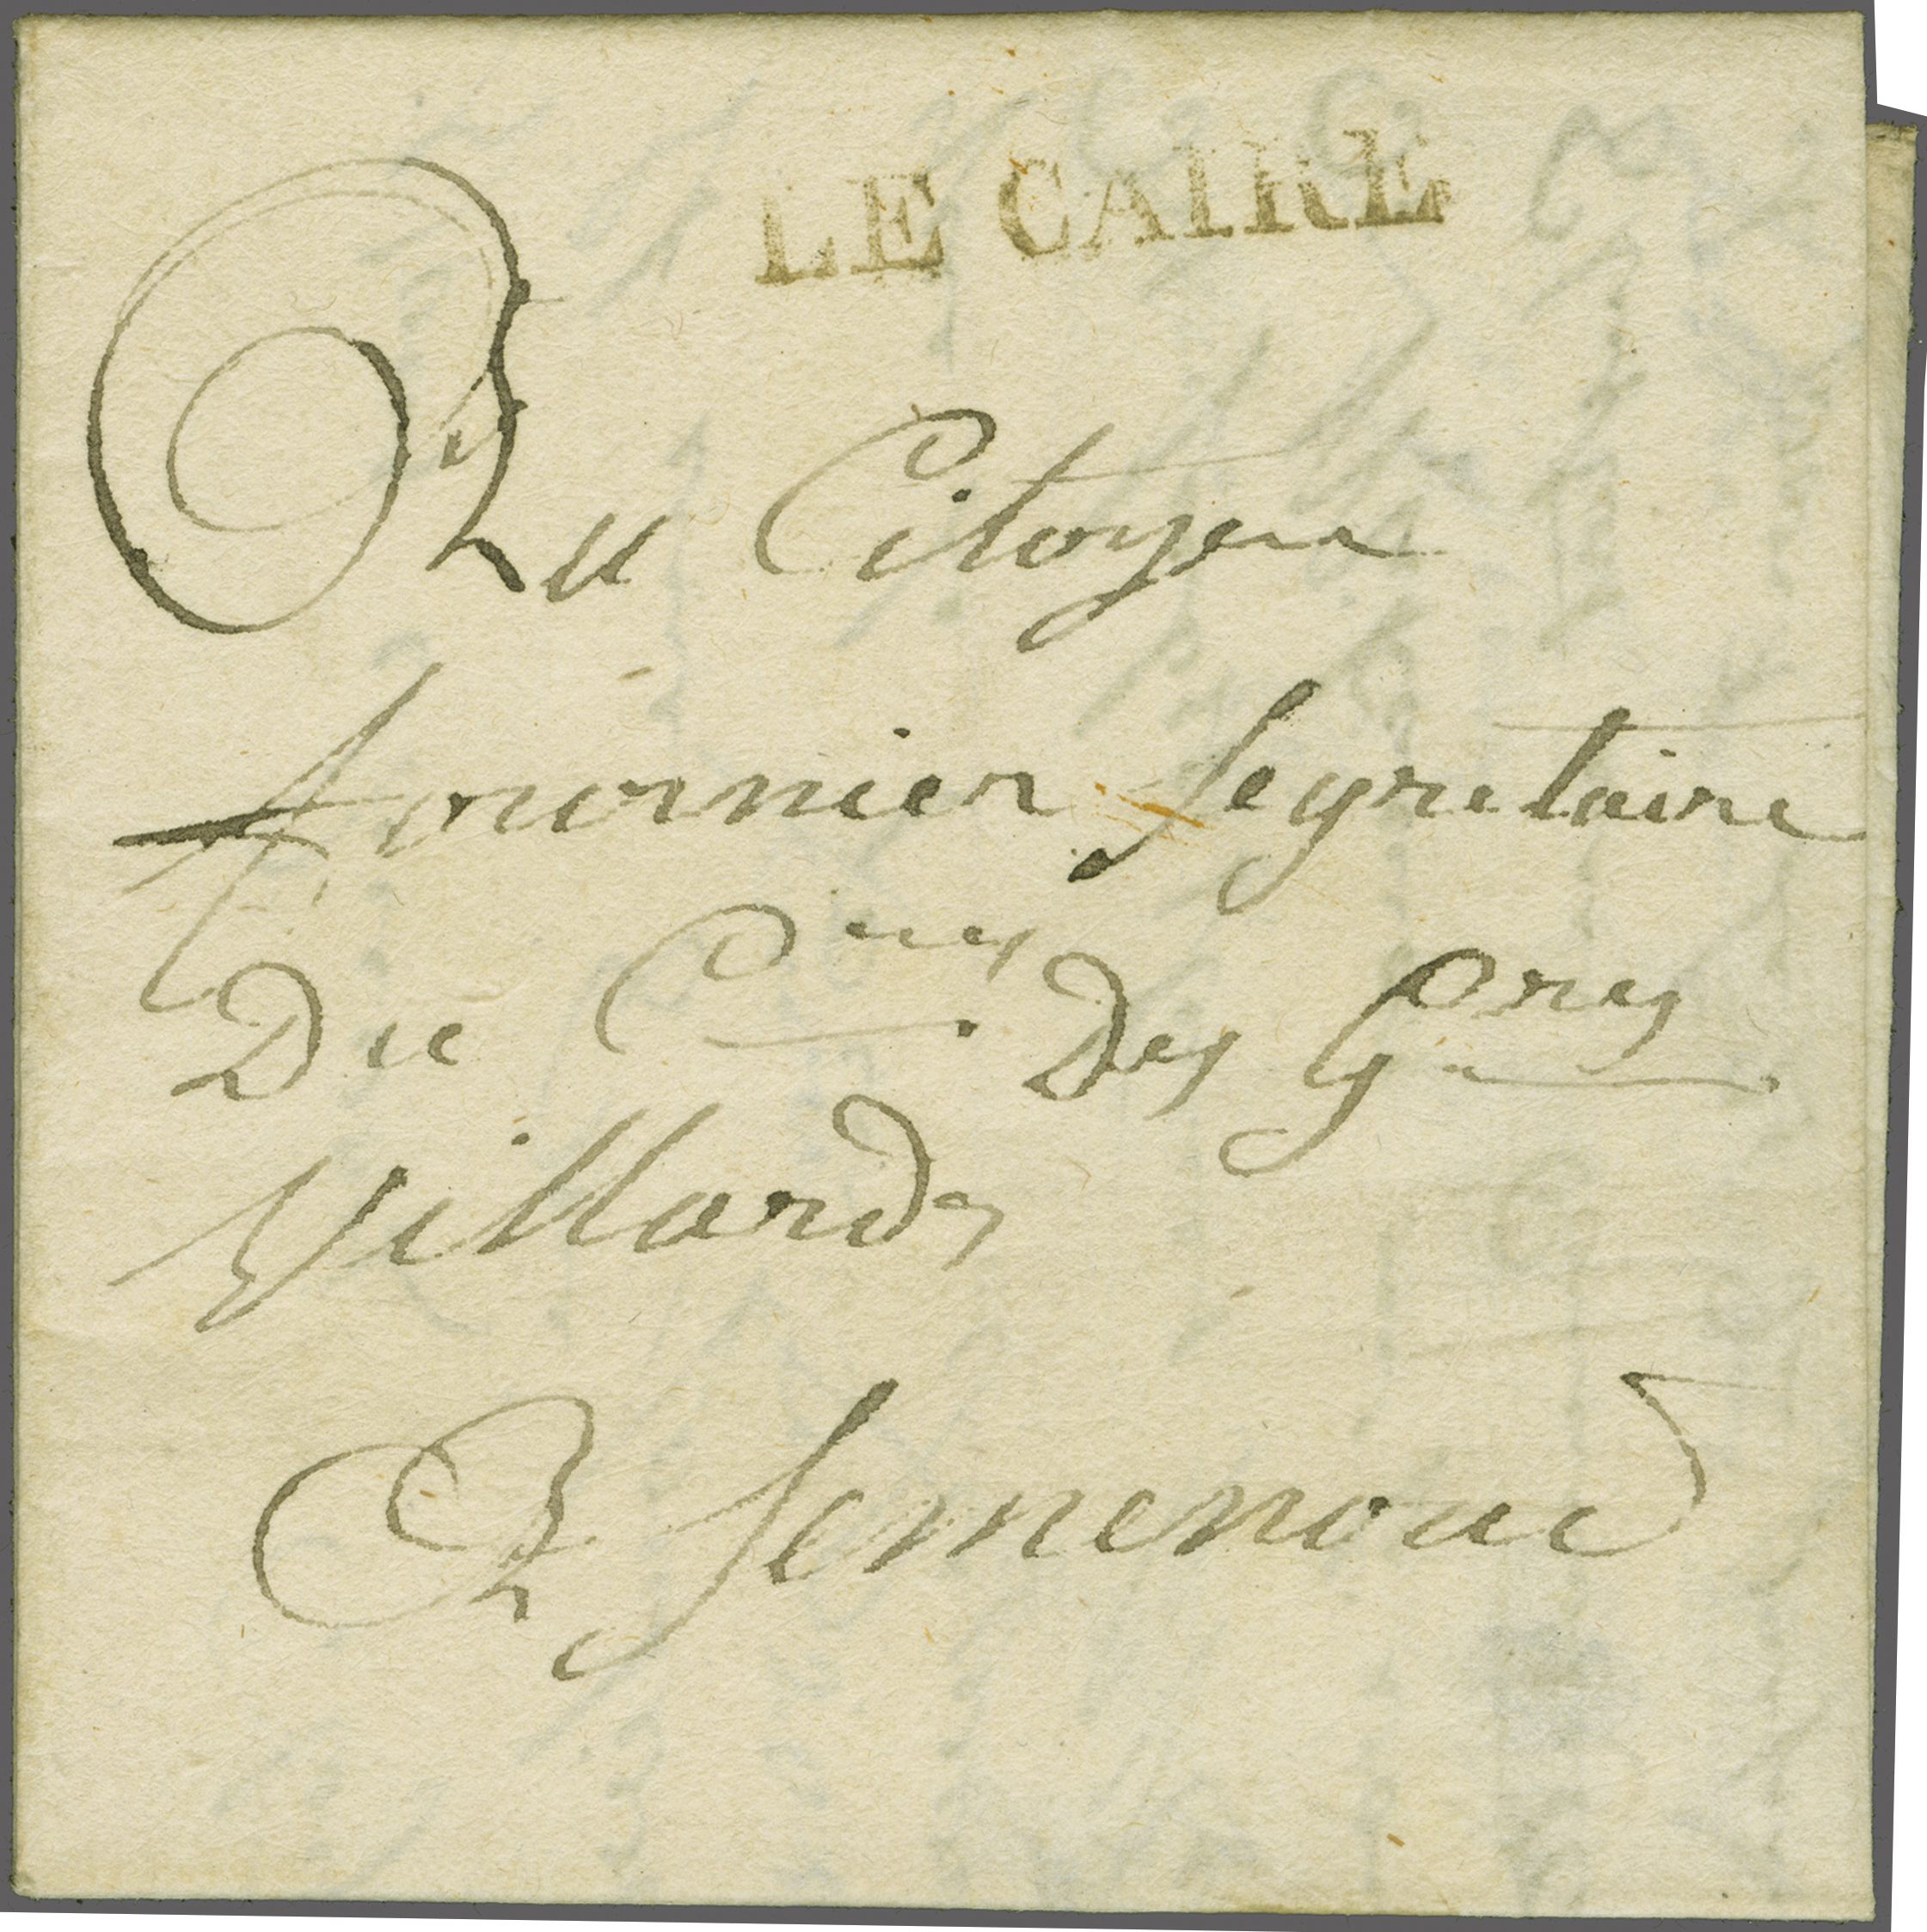 LE CAIRE
Au Citoyen
fournier Segretaire
Du C.re des G.res
Villards
A Semenoud